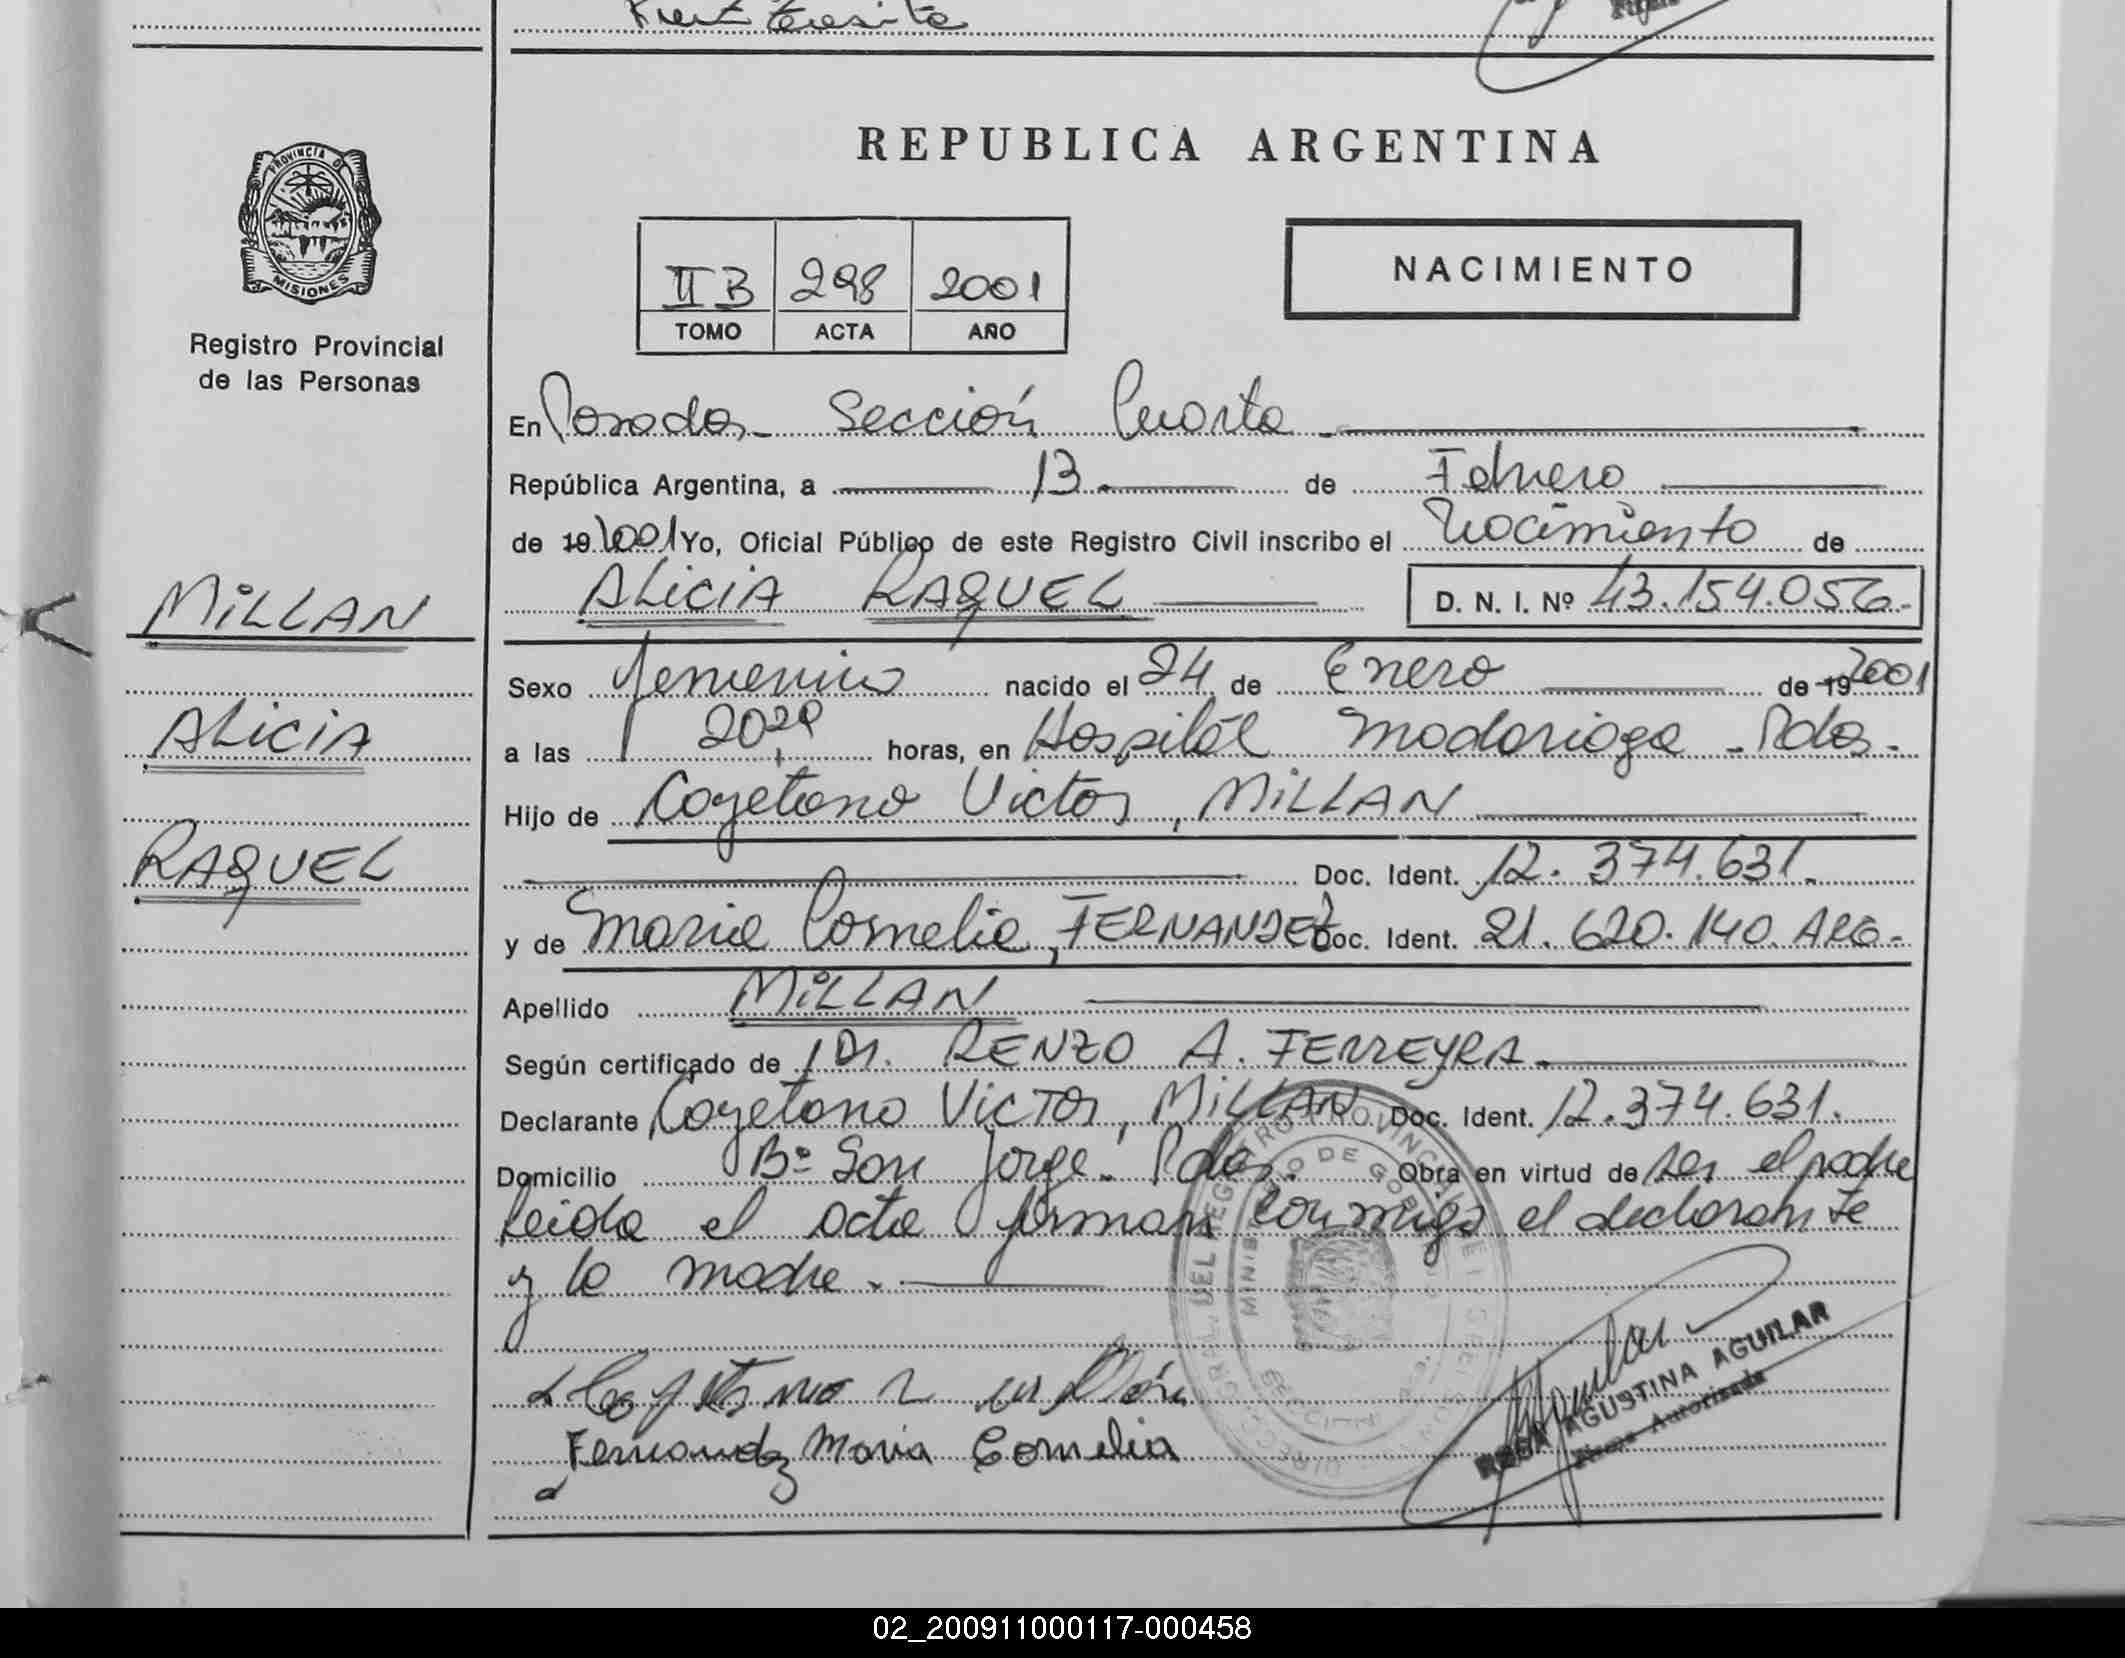 PROVINCIA DE
MISIONES
Registro Provincial
de las Personas
MILLAN
ALICIA
RAQUEL
REPUBLICA ARGENTINA
II B 298 2001
TOMO ACTA AÑO
NACIMIENTO
En Posadas Sección Cuarta
República Argentina, a 13 de Febrero
de 19 2001 Yo, Oficial Público de este Registro Civil inscribo el Nacimiento de
ALICIA RAQUEL D. N. I. Nº 43.154.056.
Sexo femenino nacido el 24 de Enero de 19 2001
a las horas, en Hospital Madariaga - Pdas.
Hijo de Cayetano Victor, MILLAN
Doc. Ident. 12.374.631.
y de Maria Cornelia, FERNANDEZ Doc. Ident. 21.620.140 ARG.
Apellido MILLAN
Según certificado de Dr. RENZO A. FERREYRA.
Declarante Cayetano Victor, MILLAN Doc. Ident. 12.374.631.
Domicilio Bº San Jorge. Pdas. Obra en virtud de ser el padre
leida el acta firman conmigo el declarante
y la madre.
Fernandez Maria Cornelia
ROSA AGUSTINA AGUILAR
Firma Autorizada
02_200911000117-000458